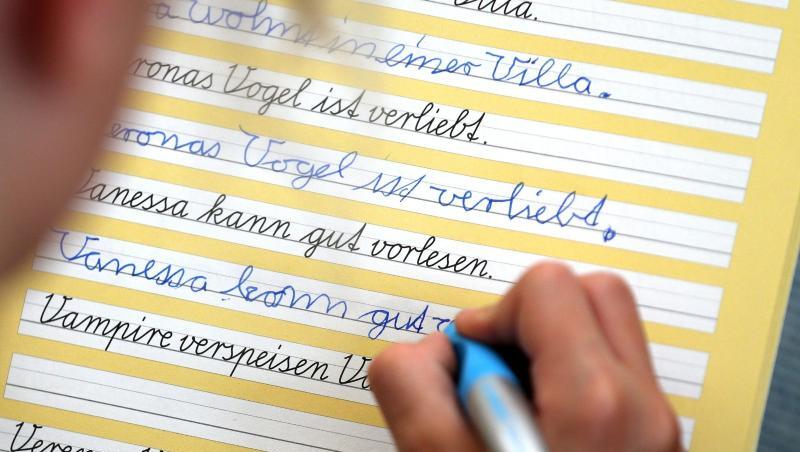 Villa.
wohnt in einer Villa.
ronas Vogel ist verliebt.
eronas Vogel ist verliebt.
Vanessa kann gut vorlesen.
Vanessa kann gut v
Vampire verspeisen Vo
Veren